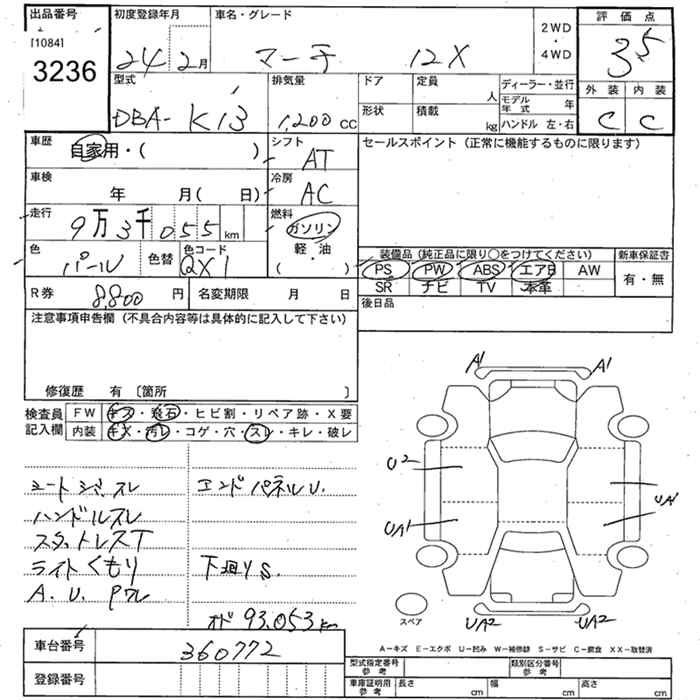 出品番号 初度登録年月 車名・グレード 2WD・4WD 評価点
[1084]
3236 24 2月 マーチ 12X 3.5
型式 排気量 ドア 定員 人 ディーラー・並行 外装 内装
モデル年式 年
DBA- K13 1,200 cc 形状 積載 kg ハンドル 左・右 C C
車歴 自家用・( ) シフト AT セールスポイント (正常に機能するものに限ります)
車検 年 月( 日) 冷房 AC
走行 9万3千055 km 燃料 ガソリン
軽・油
( )
色 パール 色替 色コード QX1 装備品 (純正品に限り○をつけてください) 新車保証書
PS PW ABS エアB AW 有・無
SR ナビ TV 本革
R券 8,800 円 名変期限 月 日 後日品
注意事項申告欄 (不具合内容等は具体的に記入して下さい)
修復歴 有 〔箇所 〕
検査員 FW キズ・飛石・ヒビ割・リペア跡・X要
記入欄 内装 キズ・汚レ・コゲ・穴・スレ・キレ・破レ
A1 A1
U2
UA1 UA1
UA2 UA2
スペア
エンドパネルU.
ハンドルスレ
スタットレスT
ライトくもり 下廻りS.
A.U.Pワレ
オド 93,053km
A-キズ E-エクボ U-凹み W-補修跡 S-サビ C-腐食 XX-取替済
車台番号 360772 型式指定番号 参考 類別区分番号 参考
登録番号 車庫証明用 参考 長さ cm 幅 cm 高さ cm